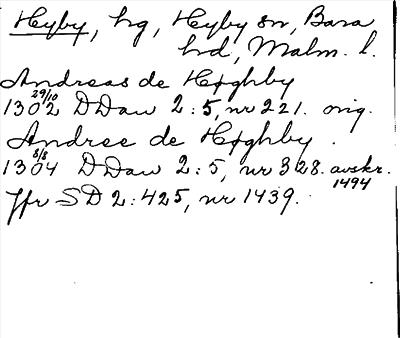 Hyby, hg, Hyby sn, Bara
hd, Malm. l.
Andreas de Høghby
1302 29/10 DDan 2:5, nr 221. orig.
Andree de Høghby.
1304 8/8 DDan 2:5, nr 328. avskr. 1494
Jfr SD 2:425, nr 1439.